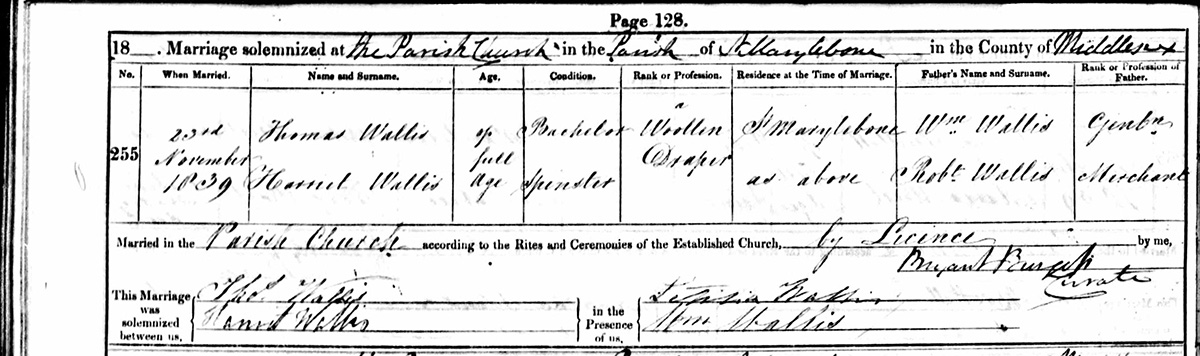 Page 128.
18 . Marriage solemnized at the Parish Church in the Parish of St Marylebone in the County of Middlesex
No. When Married. Name and Surname. Age. Condition. Rank or Profession. Residence at the Time of Marriage. Father's Name and Surname. Rank or Profession of Father.
255 23rd November 1839 Thomas Wallis of full Age Bachelor a Woollen Draper St Marylebone Wm Wallis Gentn
Harriet Wallis Spinster as above Robt Wallis Merchant
Married in the Parish Church according to the Rites and Ceremonies of the Established Church, by Licence by me,
Bryant Burgess
Curate
This Marriage was solemnized between us, Thos Wallis in the Presence of us, Letitia
Harriet Wallis Wm Wallis